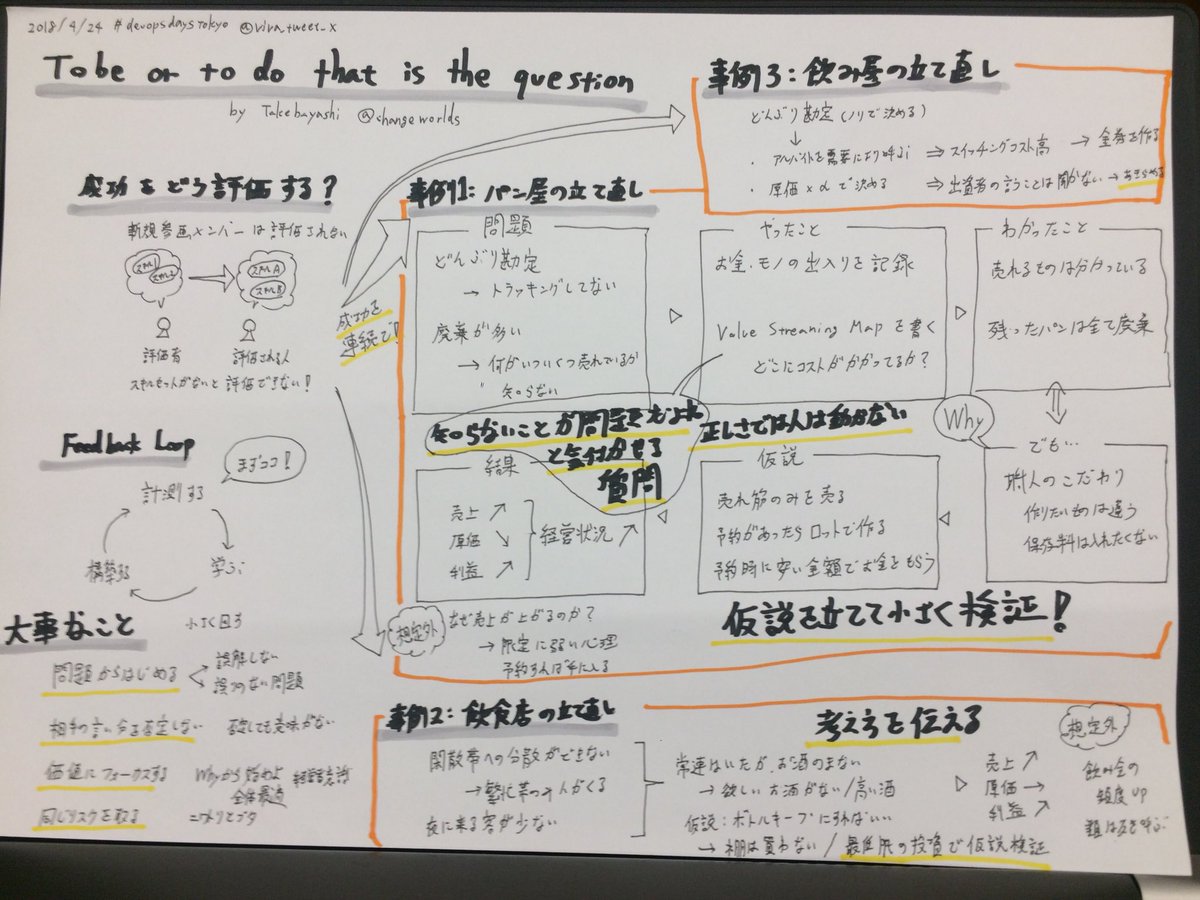 2018/4/24 #devopsdaystokyo @viva_tweet_x
To be or to do that is the question
by Takebayashi @changeworlds
成功をどう評価する?
新規参画メンバーは評価されない
スキル1
スキル2
スキルA
スキルB
評価者
評価される人
スキルセットがないと評価できない!
成功を
連続で!
Feedback Loop
まずココ!
計測する
構築する
学ぶ
小さく回す
大事なこと
問題からはじめる
誤解しない
誤りのない問題
相手の言い分を否定しない
否定しても意味がない
価値にフォーカスする
Whyから始めよ
全体最適
同じリスクを取る
ニワトリとブタ
事例1: パン屋の立て直し
問題
どんぶり勘定
→ トラッキングしてない
廃棄が多い
→ 何がいついくつ売れているか
知らない
やったこと
お金・モノの出入りを記録
Value Streaming Map を書く
どこにコストがかかってるか?
わかったこと
売れるものは分かっている
残ったパンは全て廃棄
Why
でも…
職人のこだわり
作りたいものは違う
保存料は入れたくない
仮説
売れ筋のみを売る
予約があったらロットで作る
予約時に安い金額でお金をもらう
結果
売上 ↗
原価 ↘
利益 ↗
経営状況 ↗
知らないことが問題
と気付かせる
質問
正しさでは人は動かない
仮説を立てて小さく検証!
想定外
なぜ売上が上がるのか?
→ 限定に弱い心理
予約すれば手に入る
事例2: 飲食店の立て直し
閑散帯への分散ができない
→ 繁忙帯の
夜に来る客が少ない
常連はいたが、お酒のまない
→ 欲しいお酒がない/高い酒
仮説: ボトルキープにすればいい
→ 棚は買わない/最低限の投資で仮説検証
考え方を伝える
売上 ↗
原価 →
利益 ↗
想定外
飲み会の
頻度UP
事例3: 飲み屋の立て直し
どんぶり勘定(ノリで決める)
・アルバイトを需要により呼ぶ ⇒ スイッチングコスト高 → 金券を作る
・原価×αで決める ⇒ 出資者の言うことは聞かない → あきらめる